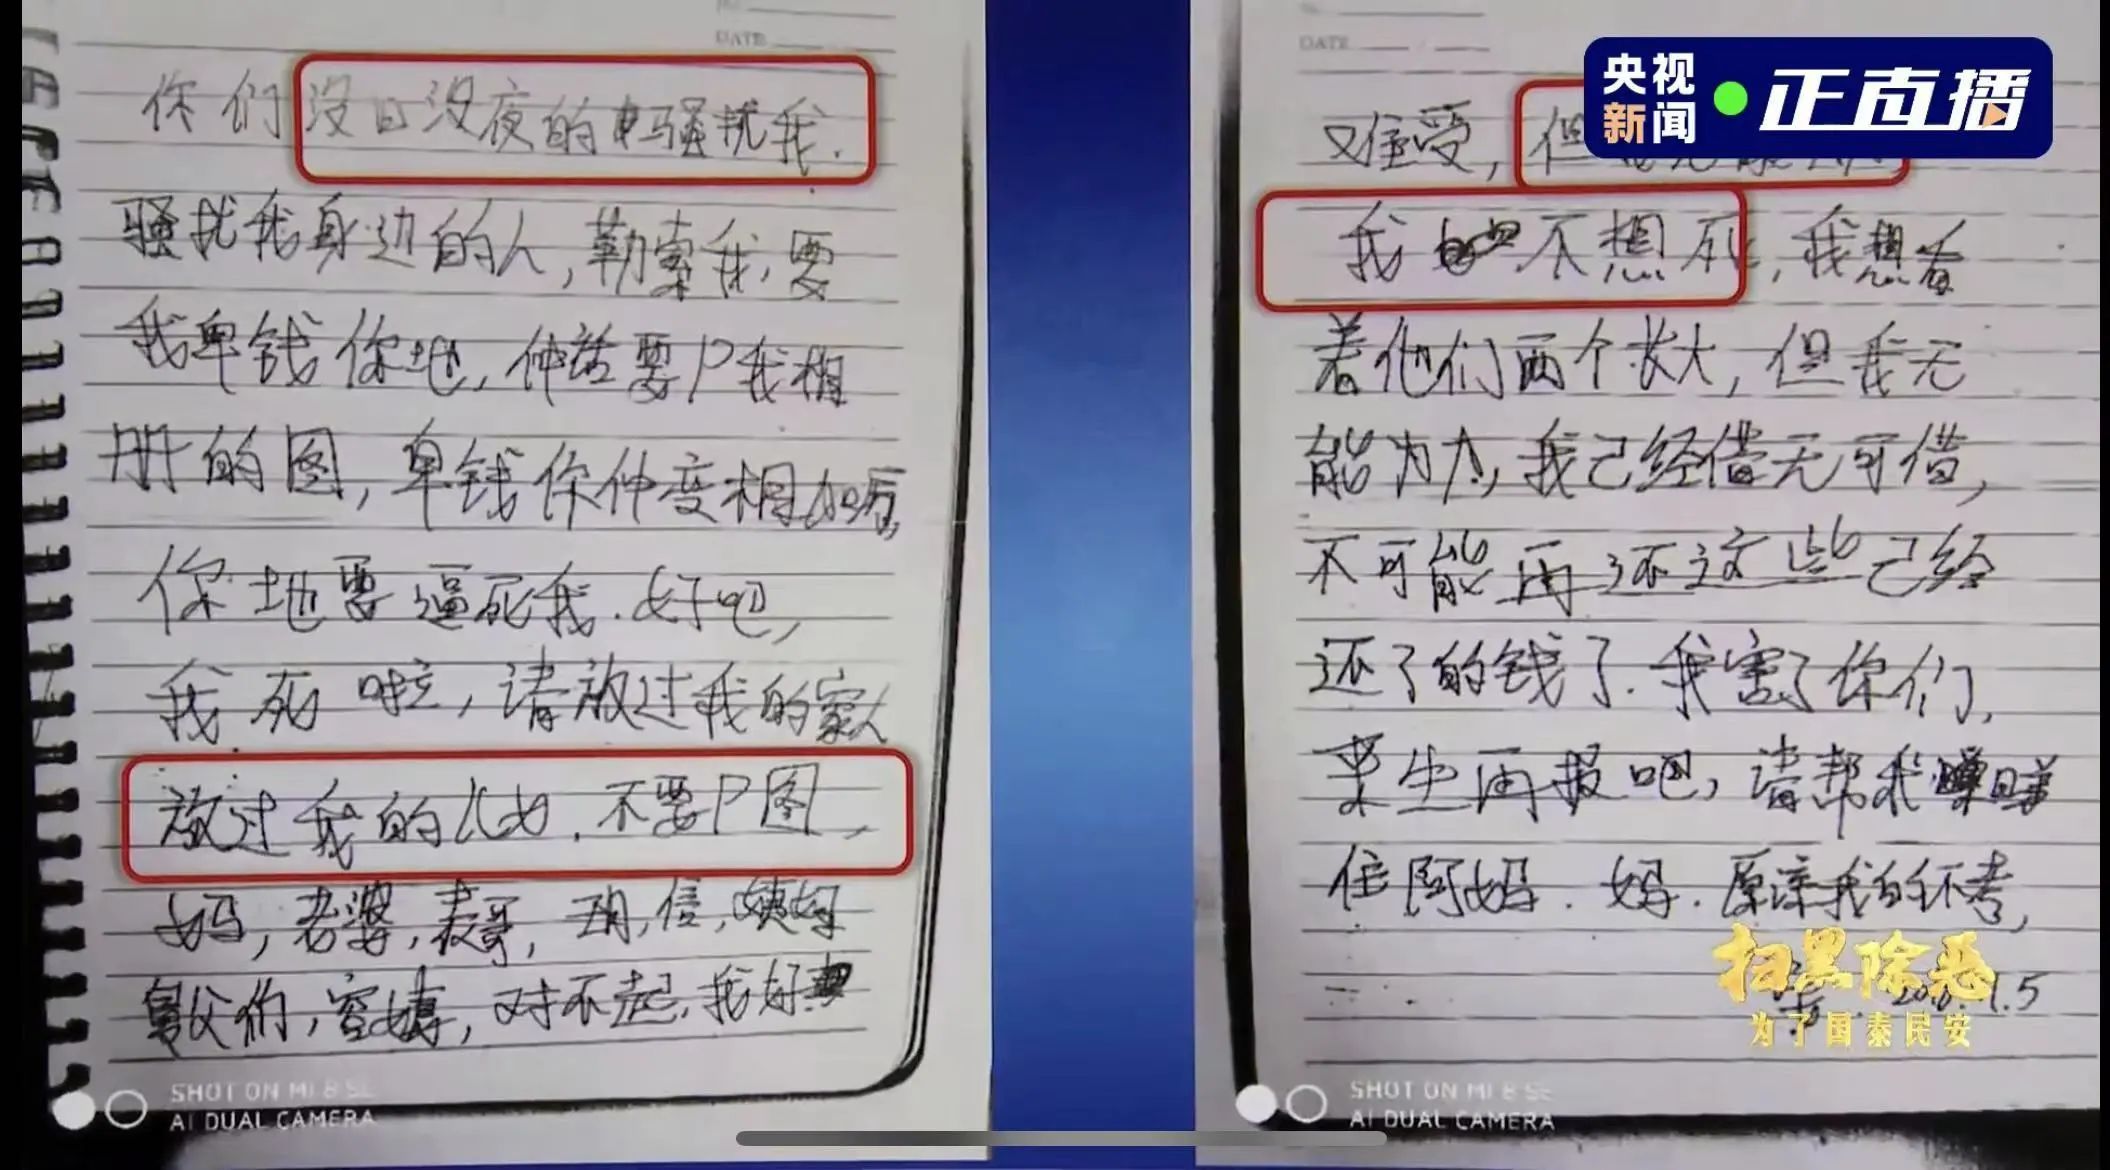 DATE
你们没日没夜的骚扰我.
骚扰我身边的人,勒索我,要
我卑钱你地,仲话要P我相
册的图,卑钱你仲变相加厉,
你地要逼死我.好吧,
我死啦,请放过我的家人
放过我的仔女.不要P图,
妈,老婆,表哥,信,
舅父们,对不起,我好
SHOT ON MI 8 SE
AI DUAL CAMERA
DATE
央视新闻 正直播
难受,但
我不想死,我想看
着他们两个长大,但我无
能为力,我已经借无可借,
不可能再还这些已经
还了的钱了.我害了你们,
来生再报吧,请帮我
住阿妈.妈.原谅我的不孝,
扫黑除恶
为了国泰民安
SHOT ON MI 8 SE
AI DUAL CAMERA